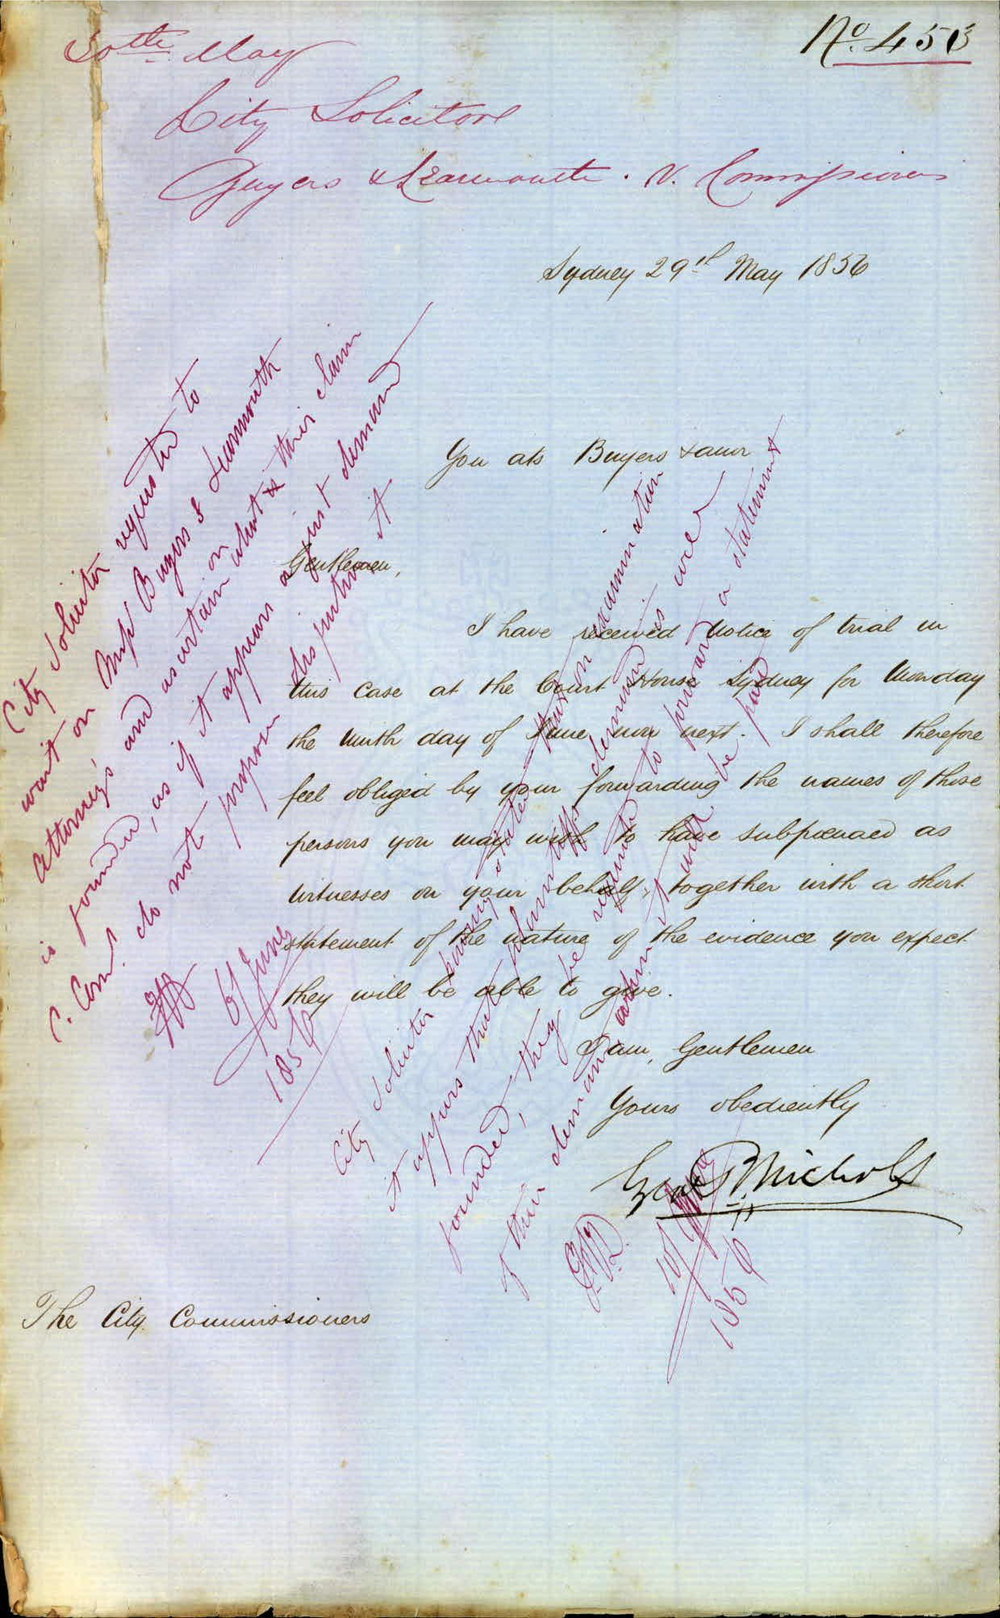 30th May
No. 453
City Solicitor
Buyers & Learmonth. v. Commissioners
Sydney 29th May 1856
You ats Buyers & anor
Gentlemen,
I have received Notice of trial in
this case at the Court House Sydney for Monday
the ninth day of June now next. I shall therefore
feel obliged by your forwarding the names of those
persons you may wish to have subpœnaed as
witnesses on your behalf together with a short
statement of the nature of the evidence you expect
they will be able to give.
I am, Gentlemen
Yours obediently
Geo R Nichols
The City Commissioners
City Solicitor requested to
wait on Messrs Buyers & Learmonth
Attorney, and ascertain on what their claim
is founded, as if it appears a just demand
C. Comrs do not propose disputing it
6/ June
1856
City Solicitor having stated that on examination
it appears that plaintiffs demand is well
founded, they be requested to forward a statement
of their demand and it will be paid
10/ June
1856